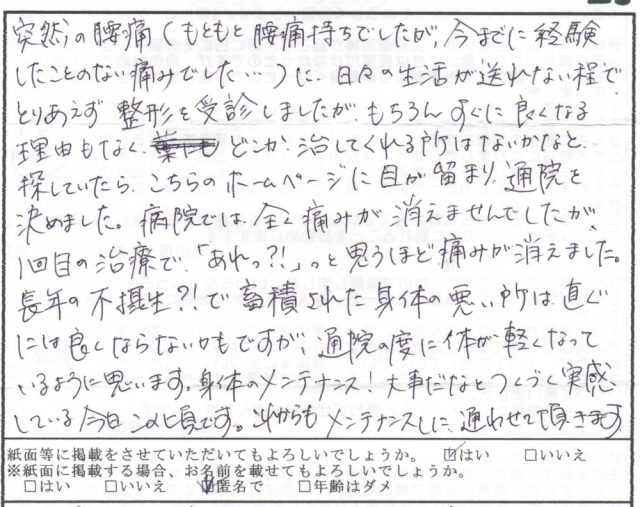 突然の腰痛(もともと腰痛持ちでしたが、今までに経験
したことのない痛みでした…)に、日々の生活が送れない程で
とりあえず 整形を受診しましたが、もちろん すぐに良くなる
理由もなく、どこか 治してくれる所はないかなと
探していたら、こちらのホームページに目が留まり、通院を
決めました。病院では、全く痛みが消えませんでしたが、
1回目の治療で、「あれっ?!」っと思うほど痛みが消えました。
長年の不摂生?!で蓄積された身体の悪い所は、直ぐ
には良くならないかもですが、通院の度に体が軽くなって
いるように思います。身体のメンテナンス!大事だなとつくづく実感
している今日この頃です。これからもメンテナンスしに、通わせて頂きます
紙面等に掲載をさせていただいてもよろしいでしょうか。 ☑はい □いいえ
※紙面に掲載する場合、お名前を載せてもよろしいでしょうか。
□はい □いいえ ☑匿名で □年齢はダメ